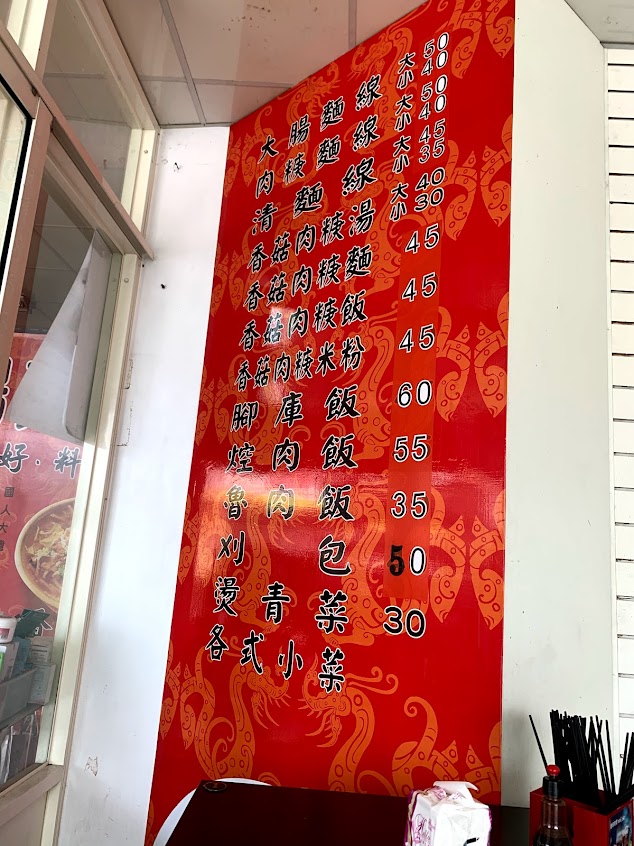 大腸麵線 大50 小40
肉焿麵線 大50 小40
清麵線 大45 小35
香菇肉焿湯 大40 小30
香菇肉焿麵 45
香菇肉焿飯 45
香菇肉焿米粉 45
腳庫飯 60
焢肉飯 55
魯肉飯 35
刈包 50
燙青菜 30
各式小菜
好·料
國人大